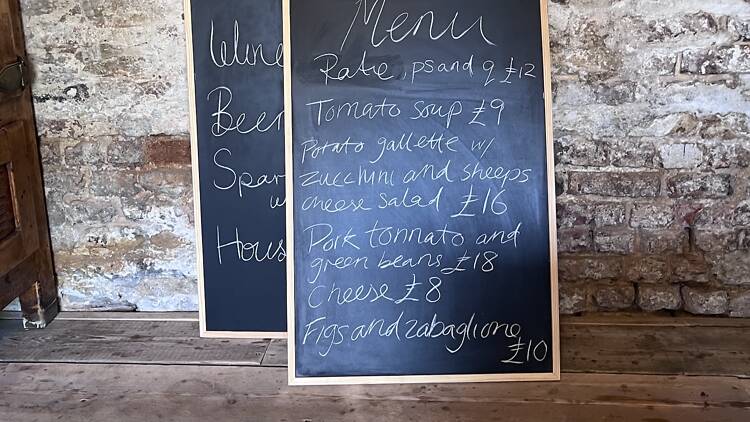 Wine
Beer
Spar
w
Hous
Menu
, psand q £12
Tomato soup £9
Potato gallette w/
zucchini and sheeps
cheese salad £16
Pork tonnato and
green beans £18
Cheese £8
Figs and zabaglione
£10